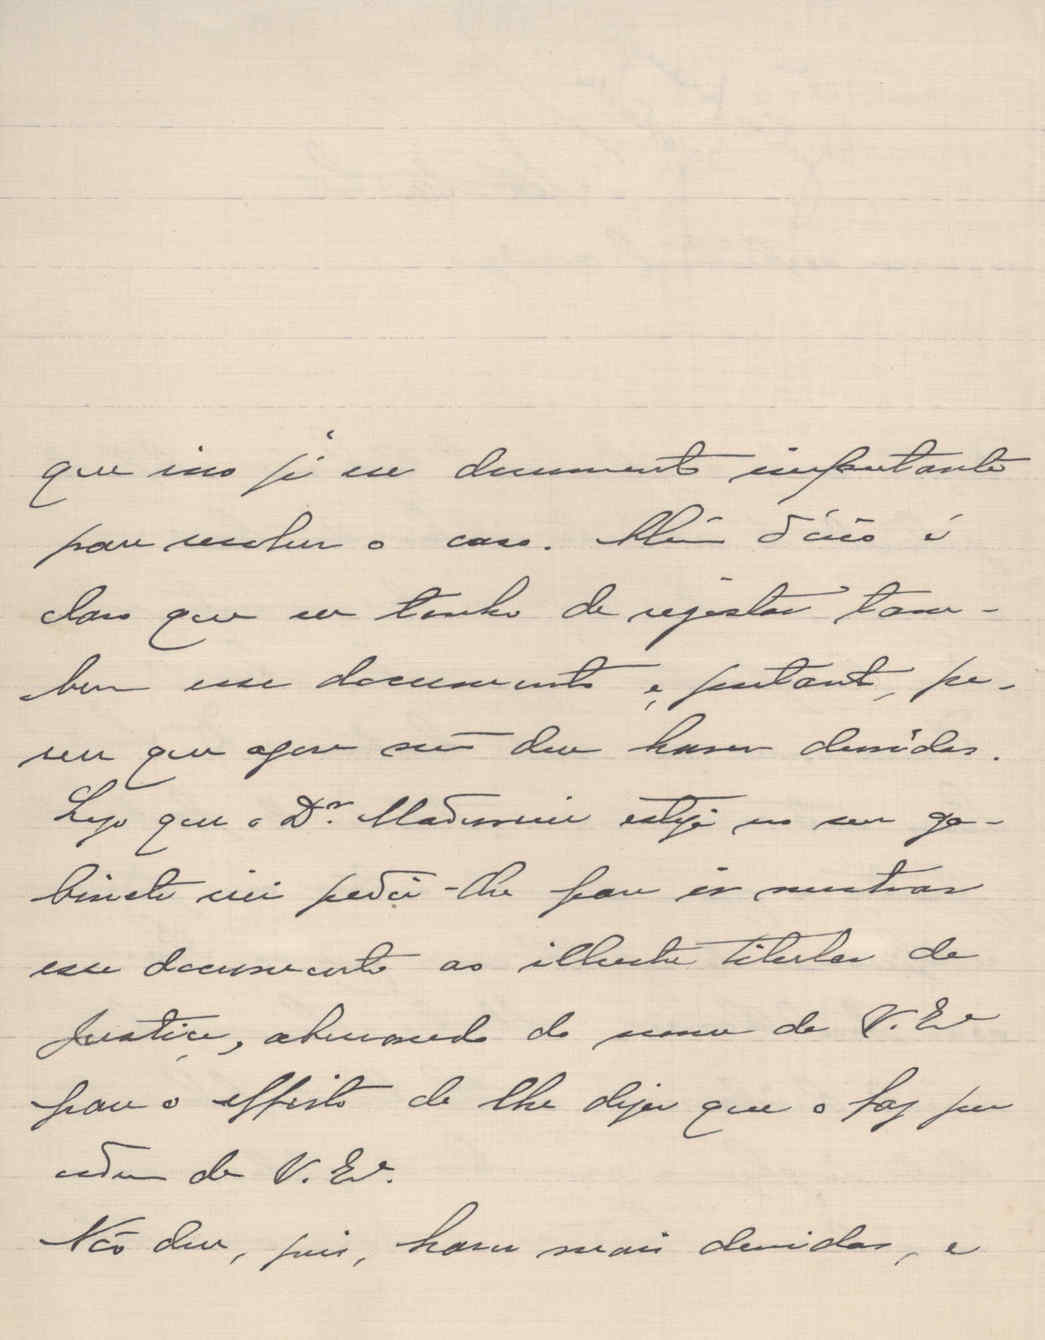 que isso já é um documento importante
para resolver o caso. Além d'isso é
claro que eu tenho de registar tam-
bem esse documento e, portanto, pe-
so que agora não deve haver duvidas.
Logo que o Dr. Madureira esteja no seu ga-
binete irei pedir-lhe para ir mostrar
esse documento ao illustre titular da
Justiça, abusando do nome de V. Exª
para o effeito de lhe dizer que o faz por
ordem de V. Exª.
Não deve, pois, haver mais duvidas, e